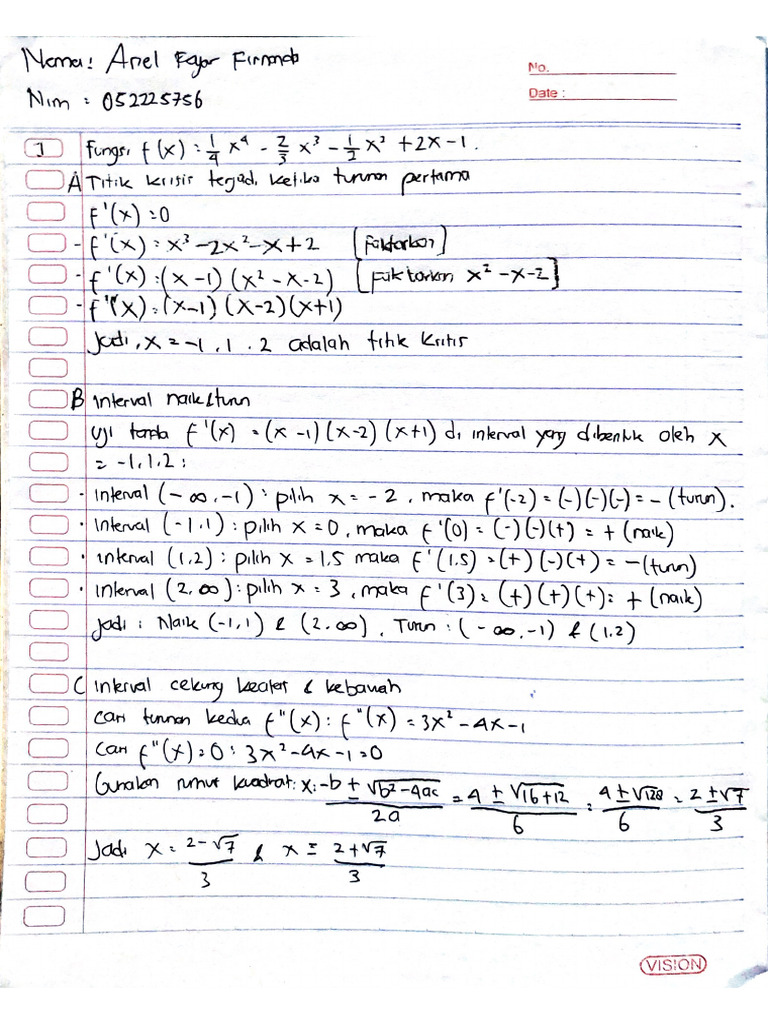 Nama : Ariel Fajar Firmansah
No.
Nim : 052225756
Date :
1 Fungsi f(x) = 1/4 x⁴ - 2/3 x³ - 1/2 x² + 2x - 1.
A Titik kritis terjadi ketika turunan pertama
f'(x) = 0
- f'(x) = x³ - 2x² - x + 2 [faktorkan]
- f'(x) = (x - 1) (x² - x - 2) [faktorkan x² - x - 2]
- f'(x) = (x-1) (x-2) (x+1)
Jadi, x = -1, 1, 2 adalah titik kritis
B Interval naik & turun
Uji tanda f'(x) = (x - 1) (x - 2) (x+1) di interval yang dibentuk oleh x
= -1, 1, 2 :
· Interval (-∞, -1) : pilih x = -2, maka f'(-2) = (-)(-)(-) = - (turun).
· Interval (-1, 1) : pilih x = 0, maka f'(0) = (-)(-)(+) = + (naik)
· interval (1, 2) : pilih x = 1,5 maka f'(1.5) = (+) (-) (+) = - (turun)
· Interval (2, ∞) : pilih x = 3, maka f'(3) = (+) (+) (+) = + (naik)
Jadi : Naik (-1, 1) & (2, ∞), Turun : (-∞, -1) & (1, 2)
C Interval cekung keatas & kebawah
Cari turunan kedua f"(x) : f"(x) = 3x² - 4x - 1
Cari f"(x) = 0 : 3x² - 4x - 1 = 0
Gunakan rumus kuadrat : x = -b ± √b² - 4ac / 2a = 4 ± √16 + 12 / 6 = 4 ± √28 / 6 = 2 ± √7 / 3
Jadi x = 2 - √7 / 3 & x = 2 + √7 / 3
VISION